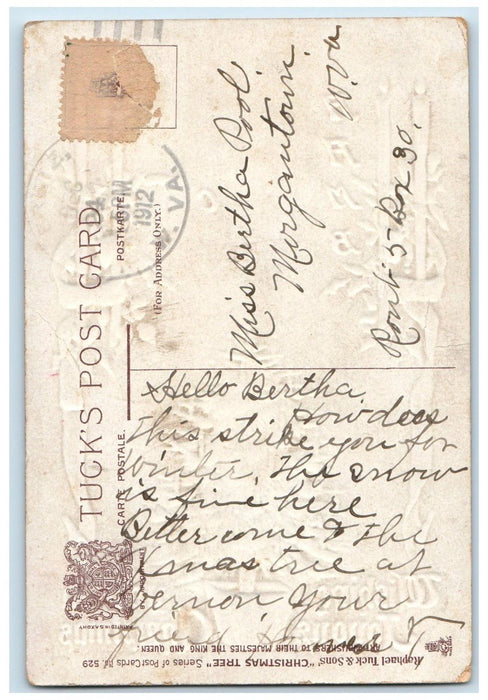 TUCK'S POST CARD.
CARTE POSTALE.
POSTKARTE.
(FOR ADDRESS ONLY.)
PM
1912
VA.
Miss Bertha Pool.
Morgantown.
W. Va
Rout-5-Box 30.
Hello Bertha.
How does
this strike you for
winter. The snow
is fine here
Better come to the
Xmas tree at
Vernon Your
friend
PRINTED IN SAXONY
Raphael Tuck & Sons' "CHRISTMAS TREE" Series of PostCards No. 529
ART PUBLISHERS TO THEIR MAJESTIES THE KING AND QUEEN.